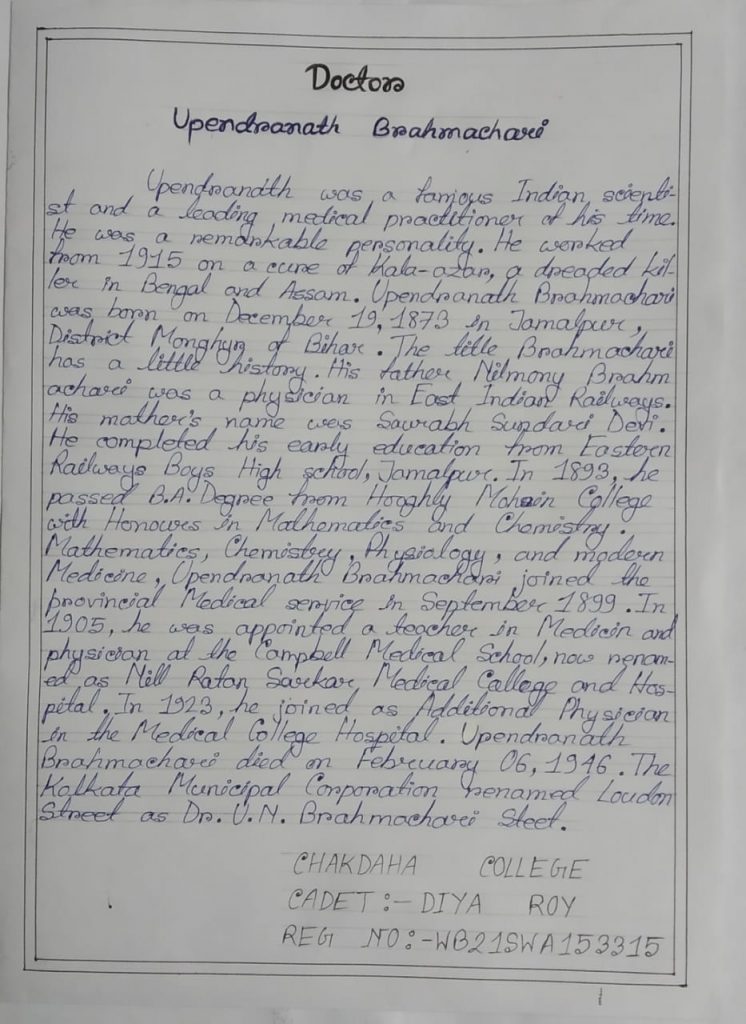 Doctors
Upendranath Brahmachari
Upendranath was a famous Indian scienti-
st and a leading medical practitioner of his time.
He was a remarkable personality. He worked
from 1915 on a cure of Kala-azar, a dreaded kil-
ler in Bengal and Assam. Upendranath Brahmachari
was born on December 19, 1873 in Jamalpur,
District Monghyr of Bihar. The title Brahmachari
has a little history. His father Nilmony Brahm
achari was a physician in East Indian Railways.
His mother's name was Saurabh Sundari Devi.
He completed his early education from Eastern
Railways Boys High school, Jamalpur. In 1893, he
passed B.A. Degree from Hooghly Mohsin College
with Honours in Mathematics and Chemistry.
Mathematics, Chemistry, Physiology, and modern
Medicine, Upendranath Brahmachari joined the
provincial Medical service in September 1899. In
1905, he was appointed a teacher in Medicin and
physician at the Campbell Medical School, now renam-
ed as Nill Ratan Sarkar Medical Callege and Hos-
pital. In 1923, he joined as Additional Physician
in the Medical College Hospital. Upendranath
Brahmachari died on February 06, 1946. The
Kolkata Municipal Corporation renamed Loudon
Street as Dr. U.N. Brahmachari Steet.
CHAKDAHA COLLEGE
CADET :- DIYA ROY
REG NO:-WB21SWA153315